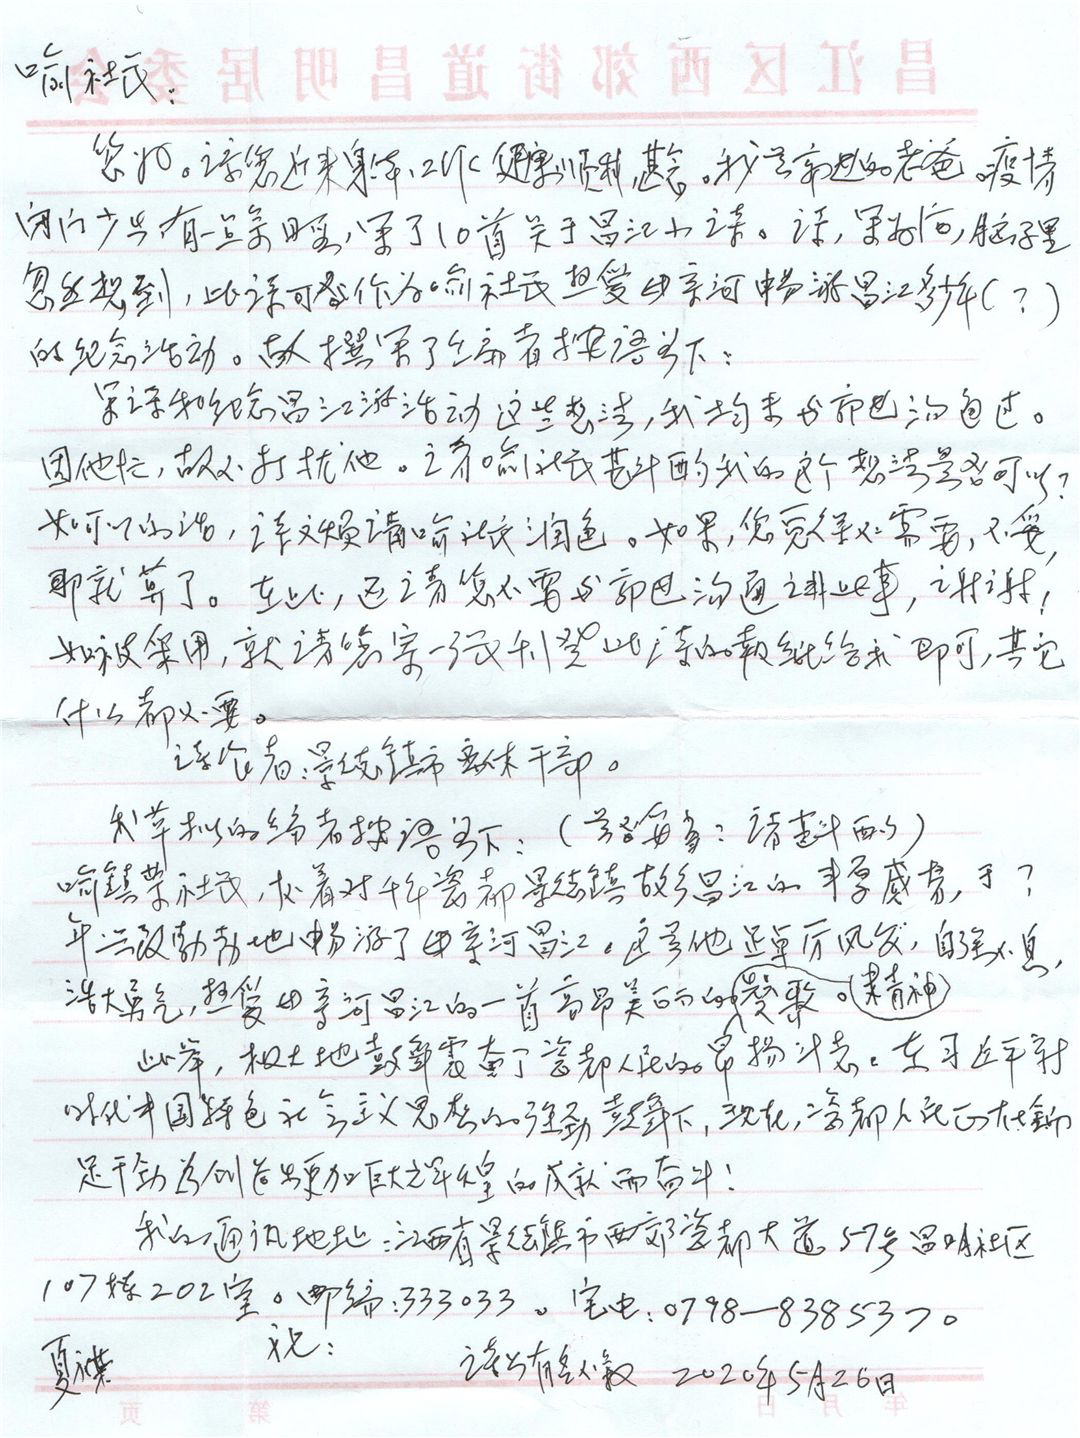 昌江区西郊街道昌明居委会
喻社长:
您好。谅您近来身体、工作健康顺利,甚念。我是郭建的老爸。疫情
闭门少出,有一点闲暇,写了10首关于昌江小诗。诗,写好后,脑子里
忽然想到,此诗可否作为喻社长热爱母亲河畅游昌江多少年(?)
的纪念活动。故撰写了编者按语如下:
写诗和纪念昌江游活动这些想法,我均未与郭建沟通过。
因他忙,故不打扰他。请喻社长斟酌我的这个想法是否可以?
如可以的话,诗文烦请喻社长润色。如果,您觉得不需要,不妥,
那就算了。在此,还请您不要与郭建沟通讲此事,谢谢!
如被采用,就请您寄一张刊登此诗的报纸给我即可,其它
什么都不要。
诗作者:景德镇市退休干部。
我草拟的编者按语如下:(是否妥当?请斟酌)
喻镇荣社长,怀着对千年瓷都景德镇故乡昌江的丰厚感情,于?
年兴致勃勃地畅游了母亲河昌江。这是他踔厉风发,自强不息,
浩大勇气,热爱母亲河昌江的一首高昂美丽的赞歌。(精神)
此举,极大地鼓舞震奋了瓷都人民的昂扬斗志。在习近平新
时代中国特色社会主义思想的强劲鼓舞下,现在,瓷都人民正在鼓
足干劲为创造出更加巨大辉煌的成就而奋斗!
我的通讯地址:江西省景德镇市西郊瓷都大道57号昌明社区
107栋202室。邮编:333033。宅电:0798—8385377。
祝:
夏祺
2020年5月26日
年 月 日
第 页